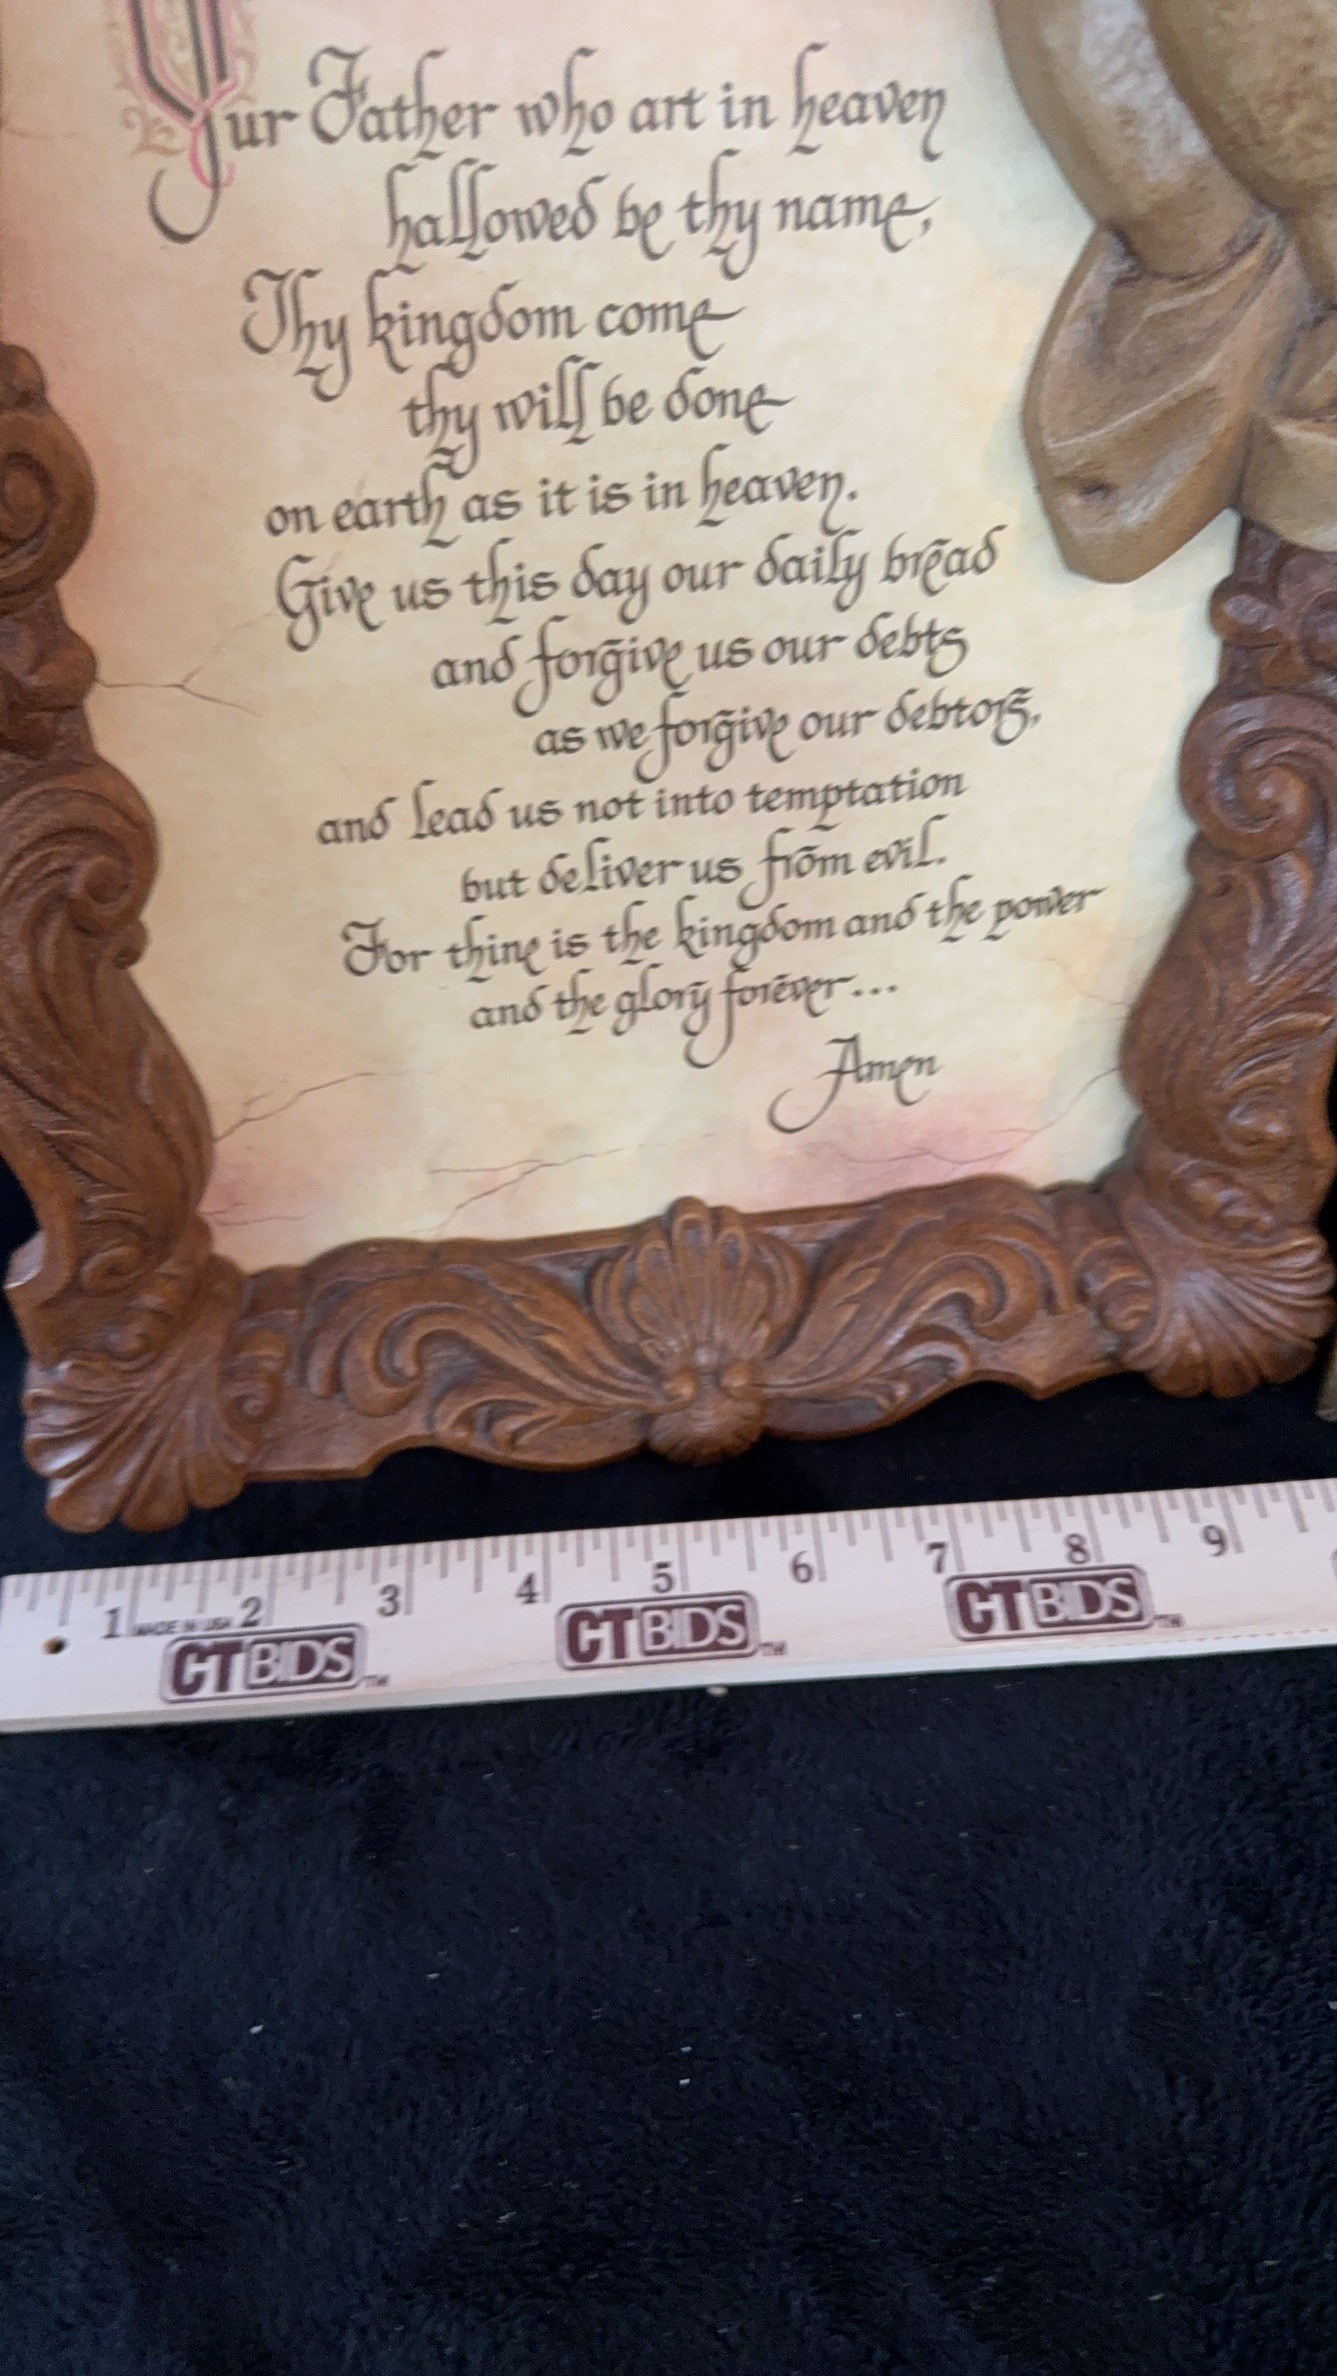 Our Father who art in heaven
hallowed be thy name,
Thy kingdom come
thy will be done
on earth as it is in heaven.
Give us this day our daily bread
and forgive us our debts
as we forgive our debtors,
and lead us not into temptation
but deliver us from evil.
For thine is the kingdom and the power
and the glory forever...
Amen
1 2 3 4 5 6 7 8 9
MADE IN USA
CTBIDS™ CTBIDS™ CTBIDS™